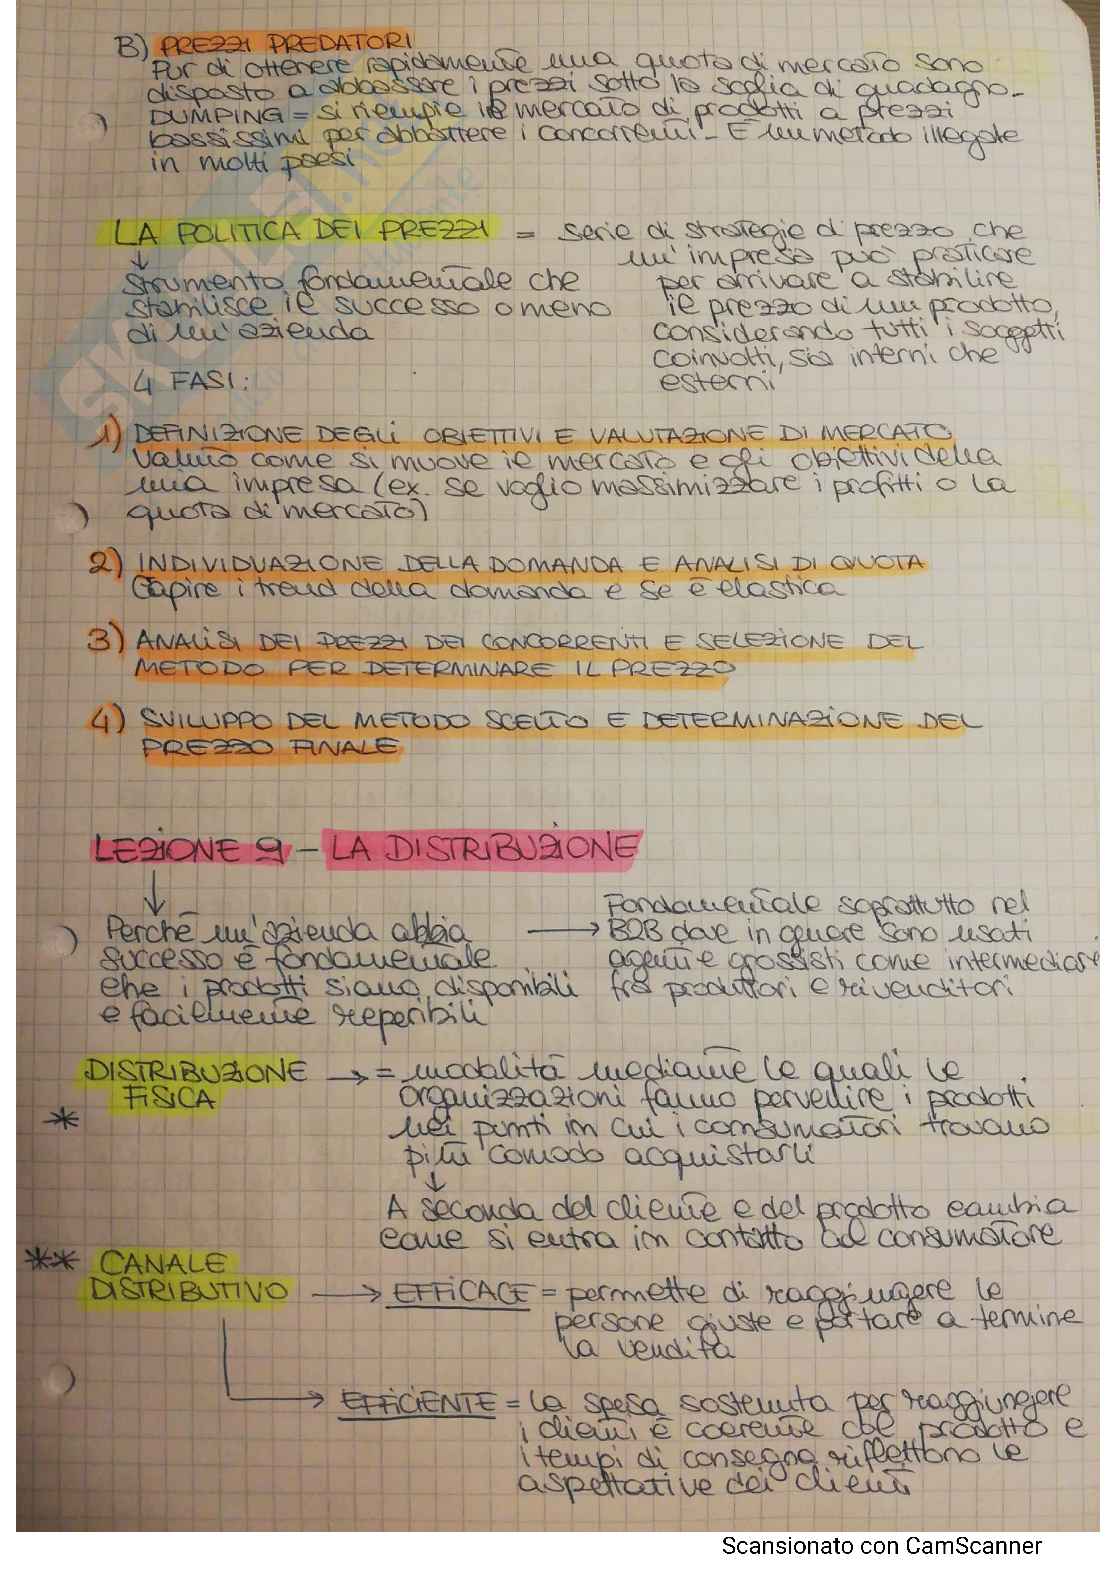 B) PREZZI PREDATORI
Pur di ottenere rapidamente una quota di mercato sono
disposto a abbassare i prezzi sotto la soglia di guadagno -
DUMPING = si riempie il mercato di prodotti a prezzi
bassissimi per abbattere i concorrenti - È un metodo illegale
in molti paesi
LA POLITICA DEI PREZZI = serie di strategie di prezzo che
un'impresa può praticare
per arrivare a stabilire
il prezzo di un prodotto,
considerando tutti i soggetti
coinvolti, sia interni che
esterni
↓
Strumento fondamentale che
stabilisce il successo o meno
di un'azienda
4 FASI:
1) DEFINIZIONE DEGLI OBIETTIVI E VALUTAZIONE DI MERCATO
Valuto come si muove il mercato e gli obiettivi della
mia impresa (ex. se voglio massimizzare i profitti o la
quota di mercato)
2) INDIVIDUAZIONE DELLA DOMANDA E ANALISI DI QUOTA
Capire i trend della domanda e se è elastica
3) ANALISI DEI PREZZI DEI CONCORRENTI E SELEZIONE DEL
METODO PER DETERMINARE IL PREZZO
4) SVILUPPO DEL METODO SCELTO E DETERMINAZIONE DEL
PREZZO FINALE
LEZIONE 9 - LA DISTRIBUZIONE
↓
Perché un'azienda abbia
successo è fondamentale
che i prodotti siano disponibili
e facilmente reperibili
→ Fondamentale soprattutto nel
B2B dove in genere sono usati
agenti e grossisti come intermediari
fra produttori e rivenditori
DISTRIBUZIONE → = modalità mediante le quali le
FISICA organizzazioni fanno pervenire i prodotti
* nei punti in cui i consumatori trovano
più comodo acquistarli
↓
A seconda del cliente e del prodotto cambia
come si entra in contatto col consumatore
** CANALE
DISTRIBUTIVO → EFFICACE = permette di raggiungere le
persone giuste e portare a termine
la vendita
→ EFFICIENTE = la spesa sostenuta per raggiungere
i clienti è coerente col prodotto e
i tempi di consegna riflettono le
aspettative dei clienti
Scansionato con CamScanner